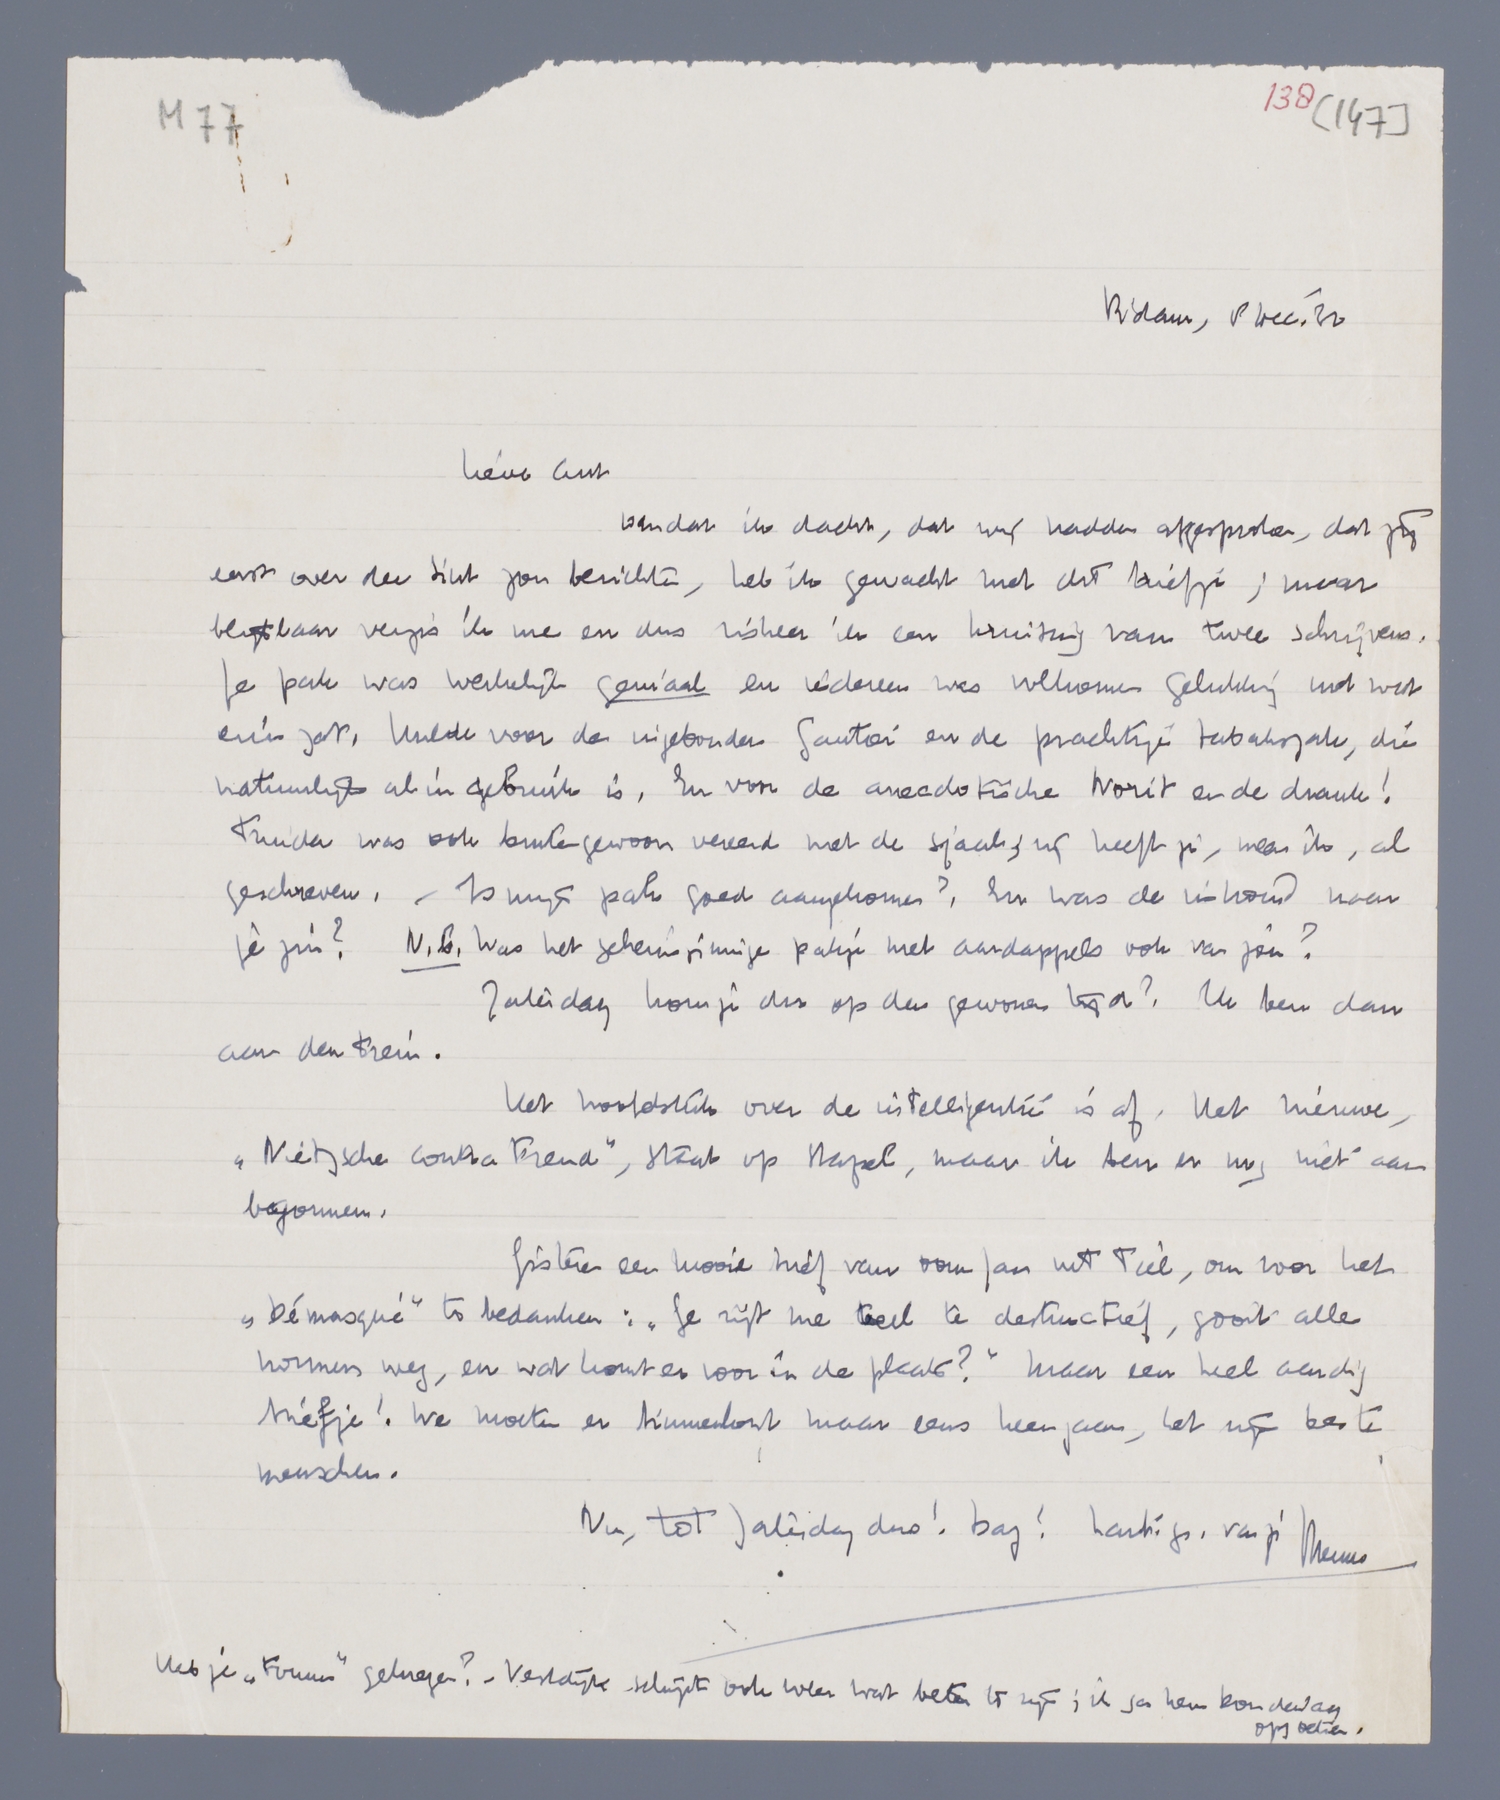 M 77
138 [147]
R'dam, 8 Dec. '32
Lieve Ant
omdat ik dacht, dat wij hadden afgesproken, dat jij
eerst over den Sint zou berichten, heb ik gewacht met dit briefje; maar
blijkbaar vergis ik me en dus riskeer ik een kruising van twee schrijvens.
Je pak was werkelijk geniaal en iedereen was volkomen gelukkig met wat
erin zat. Hulde voor de ingebonden Gautier en de prachtige tabakszak, die
natuurlijk al in gebruik is. En voor de anecdotische Norit en de drank!
Truida was ook buitengewoon vereerd met de sjaal; zij heeft je, meen ik, al
geschreven. – Is mijn pak goed aangekomen? En was de inhoud naar
je zin? N.B. Was het geheimzinnige pakje met aardappels ook van jou?
Zaterdag kom je dus op den gewonen tijd? Ik ben dan
aan den trein.
Het hoofdstuk over de intelligentie is af. Het nieuwe,
„Nietzsche contra Freud", staat op stapel, maar ik ben er nog niet aan
begonnen.
Gisteren een mooie brief van oom Jan uit Tiel, om voor het
„Démasqué" te bedanken: „Je zijt me te destructief, gooit alle
normen weg, en wat komt er voor in de plaats?" Maar een heel aardig
briefje! We moeten er binnenkort maar eens heengaan, het zijn beste
menschen.
Nu, tot Zaterdag dus! Dag! hart. gr. van je Menno
Heb je „Forum" gekregen? – Vestdijk schijnt ook weer wat beter te zijn; ik ga hem Donderdag
opzoeken.